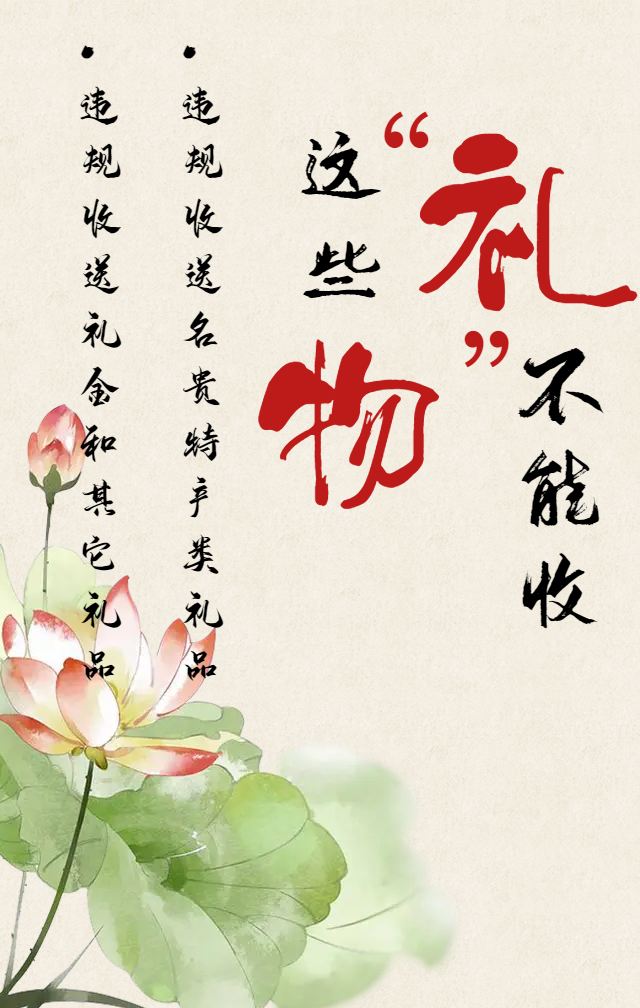 这些
“礼物”
不能收
• 违规收送名贵特产类礼品
• 违规收送礼金和其它礼品